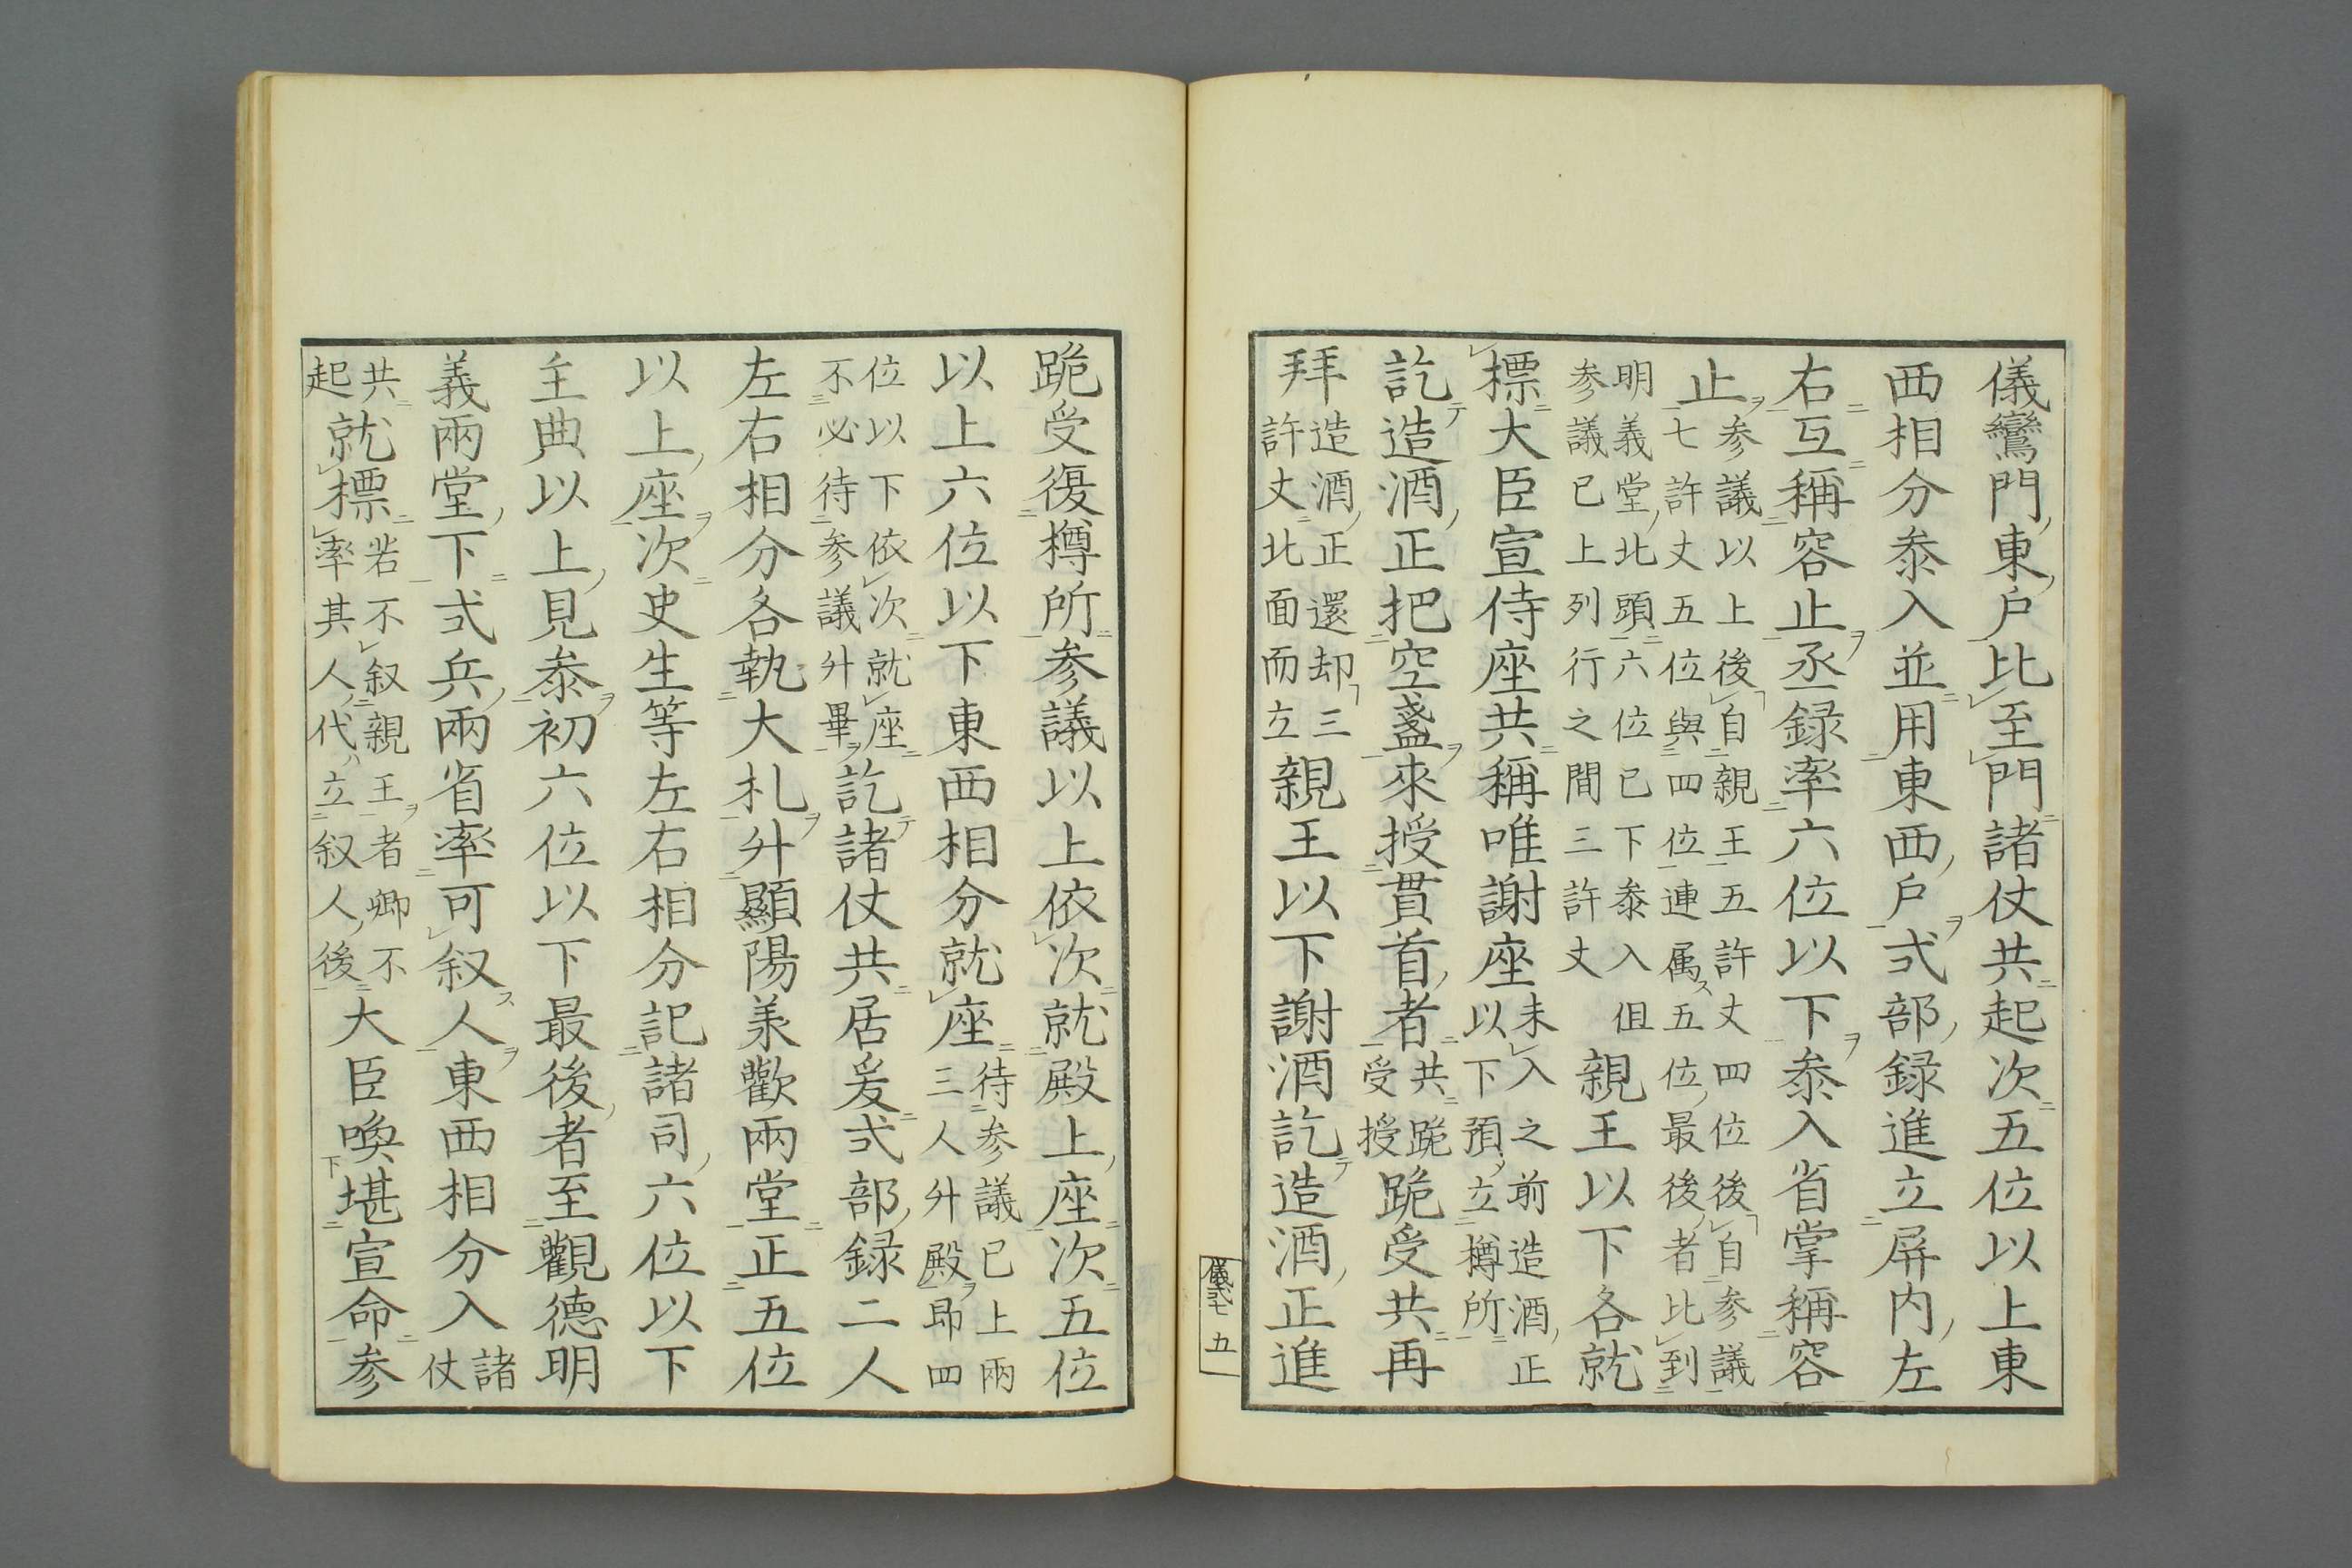 儀鸞門東戶比至門諸仗共起次五位以上東
西相分叅入並用東西戶式部録進立屏内左
右互稱容止丞録率六位以下叅入省掌稱容
止参議以上後自親王五許丈四位後自参議
七許丈五位與四位連属五位最後者比到
明義堂北頭六位已下叅入但
参議已上列行之間三許丈親王以下各就
標大臣宣侍座共稱唯謝座未入之前造酒正
以下預立樽所
訖造酒正把空盞來授貫首者共跪
受授跪受共再
拜造酒正還却三
許丈北面而立親王以下謝酒訖造酒正進
儀式七 五
跪受復樽所参議以上依次就殿上座次五位
以上六位以下東西相分就座待参議已上兩
三人升殿即四
位以下依次就座
不必待参議升畢訖諸仗共居爰式部録二人
左右相分各執大札升顯陽羕歡兩堂正五位
以上座次史生等左右相分記諸司六位以下
主典以上見叅初六位以下最後者至觀德明
義兩堂下式兵兩省率可叙人東西相分入諸
仗
共
起就標若不叙親王者卿不
率其人代立叙人後大臣喚堪宣命参